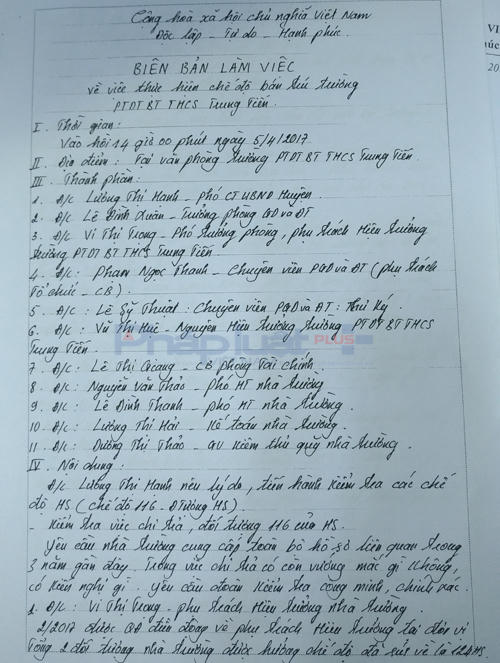 Cộng hòa xã hội chủ nghĩa Việt Nam
Độc lập - Tự do - Hạnh phúc.
BIÊN BẢN LÀM VIỆC
về việc thực hiện chế độ bán trú trường
PTDTBT THCS Trung Tiến.
I. Thời gian:
Vào hồi 14 giờ 00 phút ngày 5/4/2017.
II. Địa điểm: Tại văn phòng trường PTDTBT THCS Trung Tiến.
III. Thành phần:
1. Đ/c Lương Thị Hạnh - Phó CT UBND Huyện.
2. Đ/c Lê Đình Xuân - Trưởng phòng GD và ĐT
3. Đ/c Vi Thị Trọng - Phó trưởng phòng, phụ trách Hiệu trưởng
trường PTDTBT THCS Trung Tiến
4. Đ/c: Phạm Ngọc Thanh - Chuyên viên PGD và ĐT (phụ trách
Tổ chức - CB).
5. Đ/c: Lê Sỹ Thuật: Chuyên viên PGD và ĐT: Thư ký.
6. Đ/c: Vũ Thị Huê - Nguyên Hiệu trưởng trường PTDTBT THCS
Trung Tiến.
Phapluat PLUS+
7. Đ/c: Lê Thị Giang - CB phòng Tài chính.
8. Đ/c: Nguyễn Văn Thảo - phó HT nhà trường
9. Đ/c: Lê Đình Thanh - phó HT nhà trường.
10. Đ/c: Lương Thị Hải - Kế toán nhà trường.
11. Đ/c: Dương Thị Thảo - GV kiêm thủ quỹ nhà trường.
IV. Nội dung:
Đ/c Lương Thị Hạnh nêu lý do, tiến hành kiểm tra các chế
độ HS (chế độ 116 - Đ.Tượng HS).
- Kiểm tra việc chi trả, đối tượng 116 của HS.
Yêu cầu nhà trường cung cấp toàn bộ hồ sơ liên quan trong
3 năm gần đây. Trong việc chi trả có còn vướng mắc gì không,
có kiến nghị gì. Yêu cầu đoàn kiểm tra công minh, chính xác.
1. Đ/c: Vi Thị Trọng - phụ trách Hiệu trưởng nhà trường.
2/2017 được QĐ điều động về phụ trách Hiệu trưởng tại đơn vị
Tổng 2 đối tượng nhà trường được hưởng chế độ là 124HS
VI
húc
20